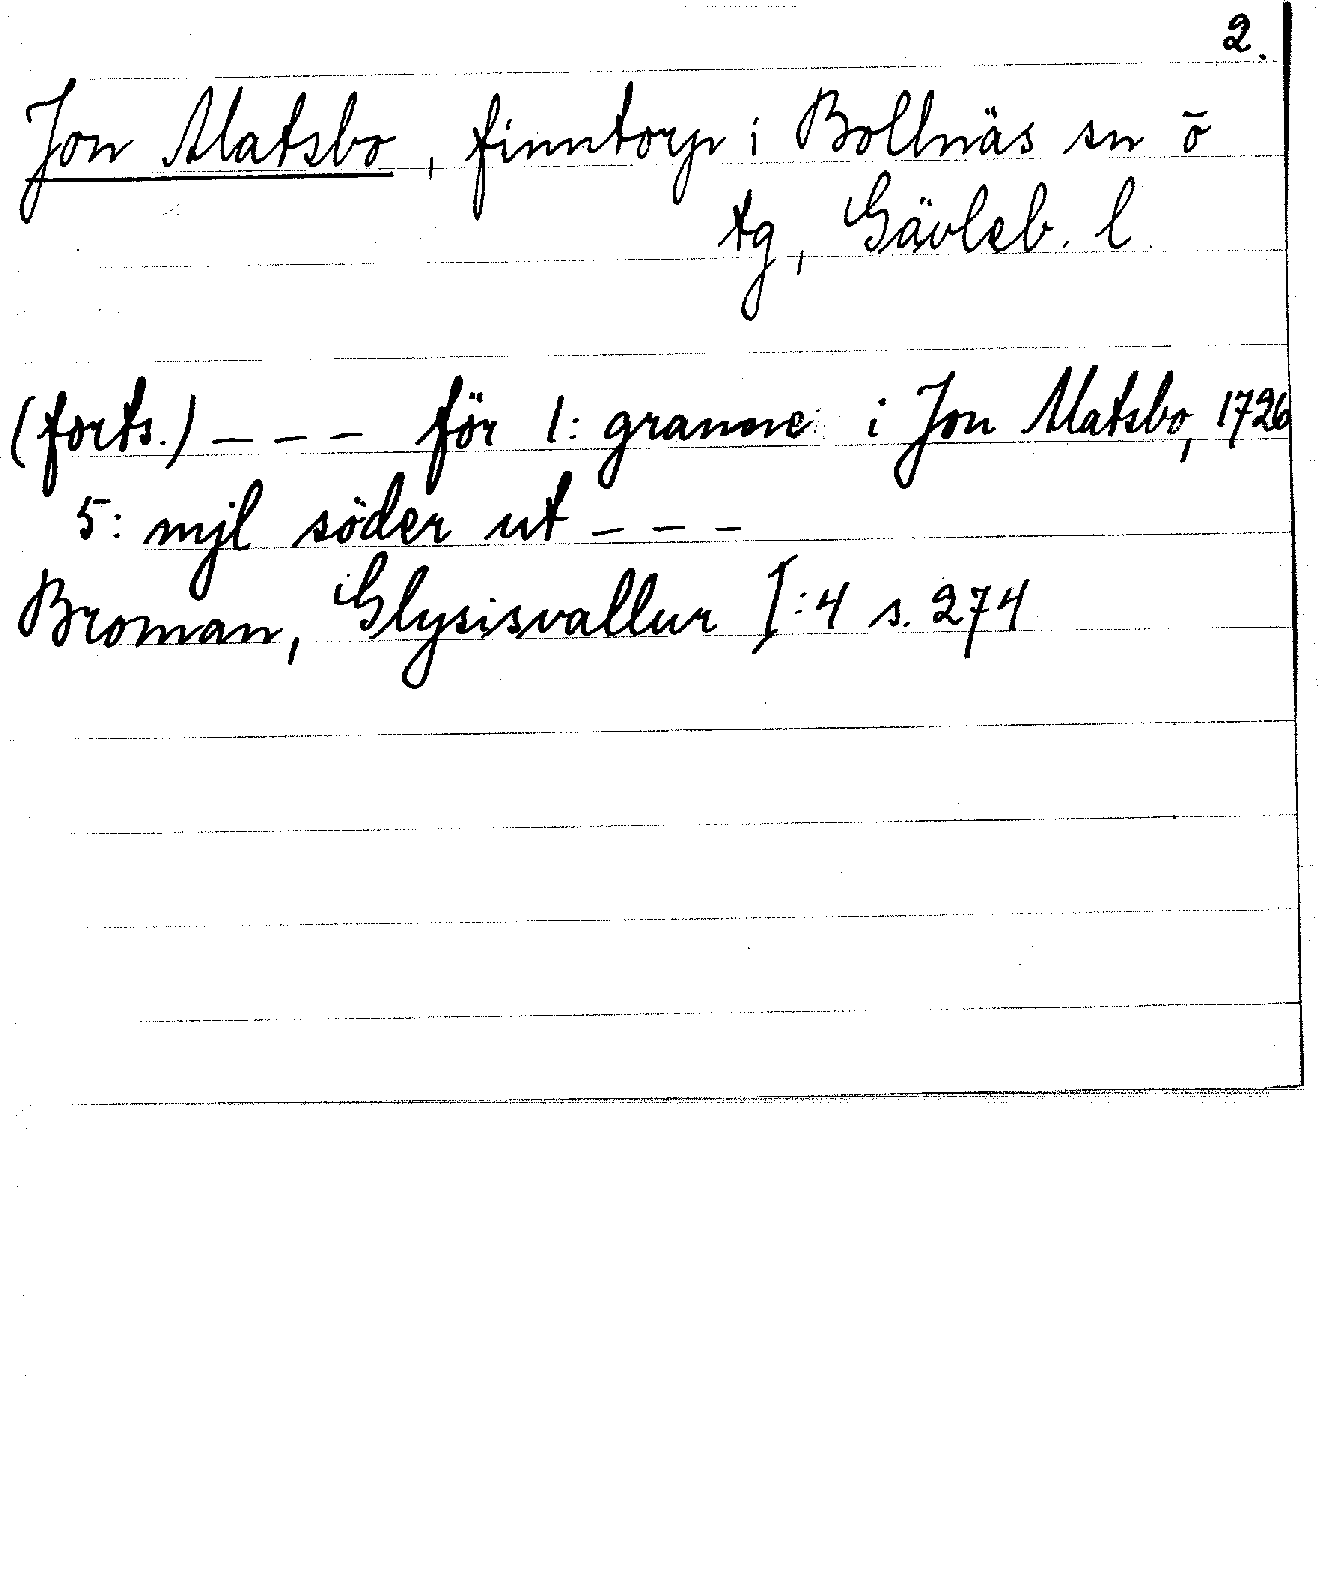 2.
Jon Matsbo, finntorp i Bollnäs sn o
tg, Gävleb. l.
(forts.) _ _ _ för 1: granne: i Jon Matsbo, 1726
5: mjl söder ut _ _ _
Broman, Glysisvallur I:4 s. 274